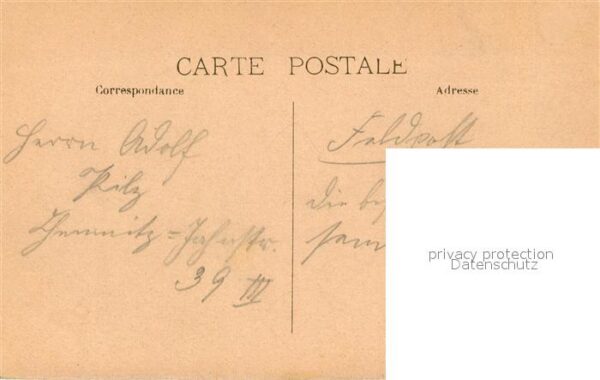 CARTE POSTALE
Correspondance
Adresse
Herrn Adolf
Pilz
Chemnitz=Jahnstr.
39 III
Feldpost
die
privacy protection
Datenschutz